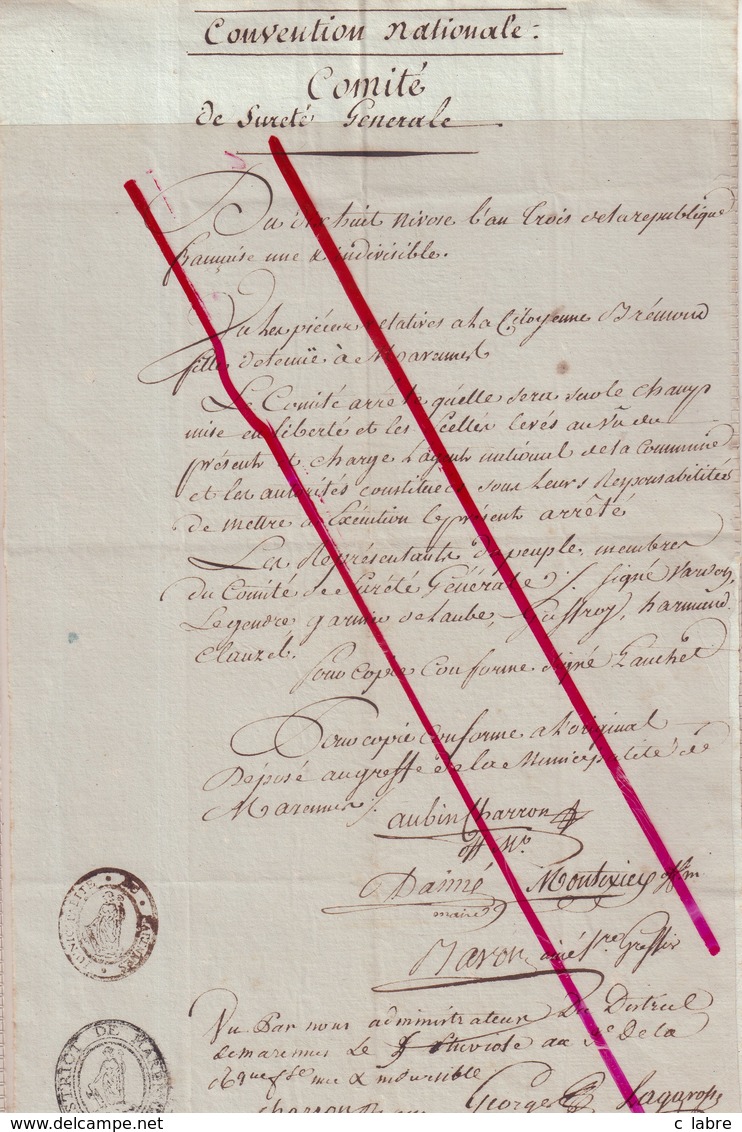 Convention Nationale.
Comité
de Sureté Generale
Du dix huit nivose l'an trois de la republique
française une & indivisible.
Vu les pièces relatives a la Citoyenne Brémond
fille detenüe à Marennes
Le Comité arrête quelle sera sur le champ
mise en liberté et les scellés levés au Vu du
présent et charge l'agent national de la Commune
et les autorités constituées sous leurs Responsabilités
de mettre à Exécution le présent arrêté
Les Représentants du peuple, membres
du Comité de Sureté Générale signé Vardon,
Legendre, garnier de laube, Guffroy, harmand,
Clauzel.
Pour copie Conforme signé Gauchet
Pour copie Conforme a l'original
Déposé au greffe de la Municipalité de
Marennes
aubin Charron
off Mp.
Daimé Montixier off m
maire
Bavon ainé Greffier
Vu Par nous administrateurs Du District
de marennes le 8 Pluviose an 3e de la
une & indivisible
Georges Lagarosse
Charron
MUNICIPALITE DE MARENNES
DISTRICT DE MARENNES
c labre